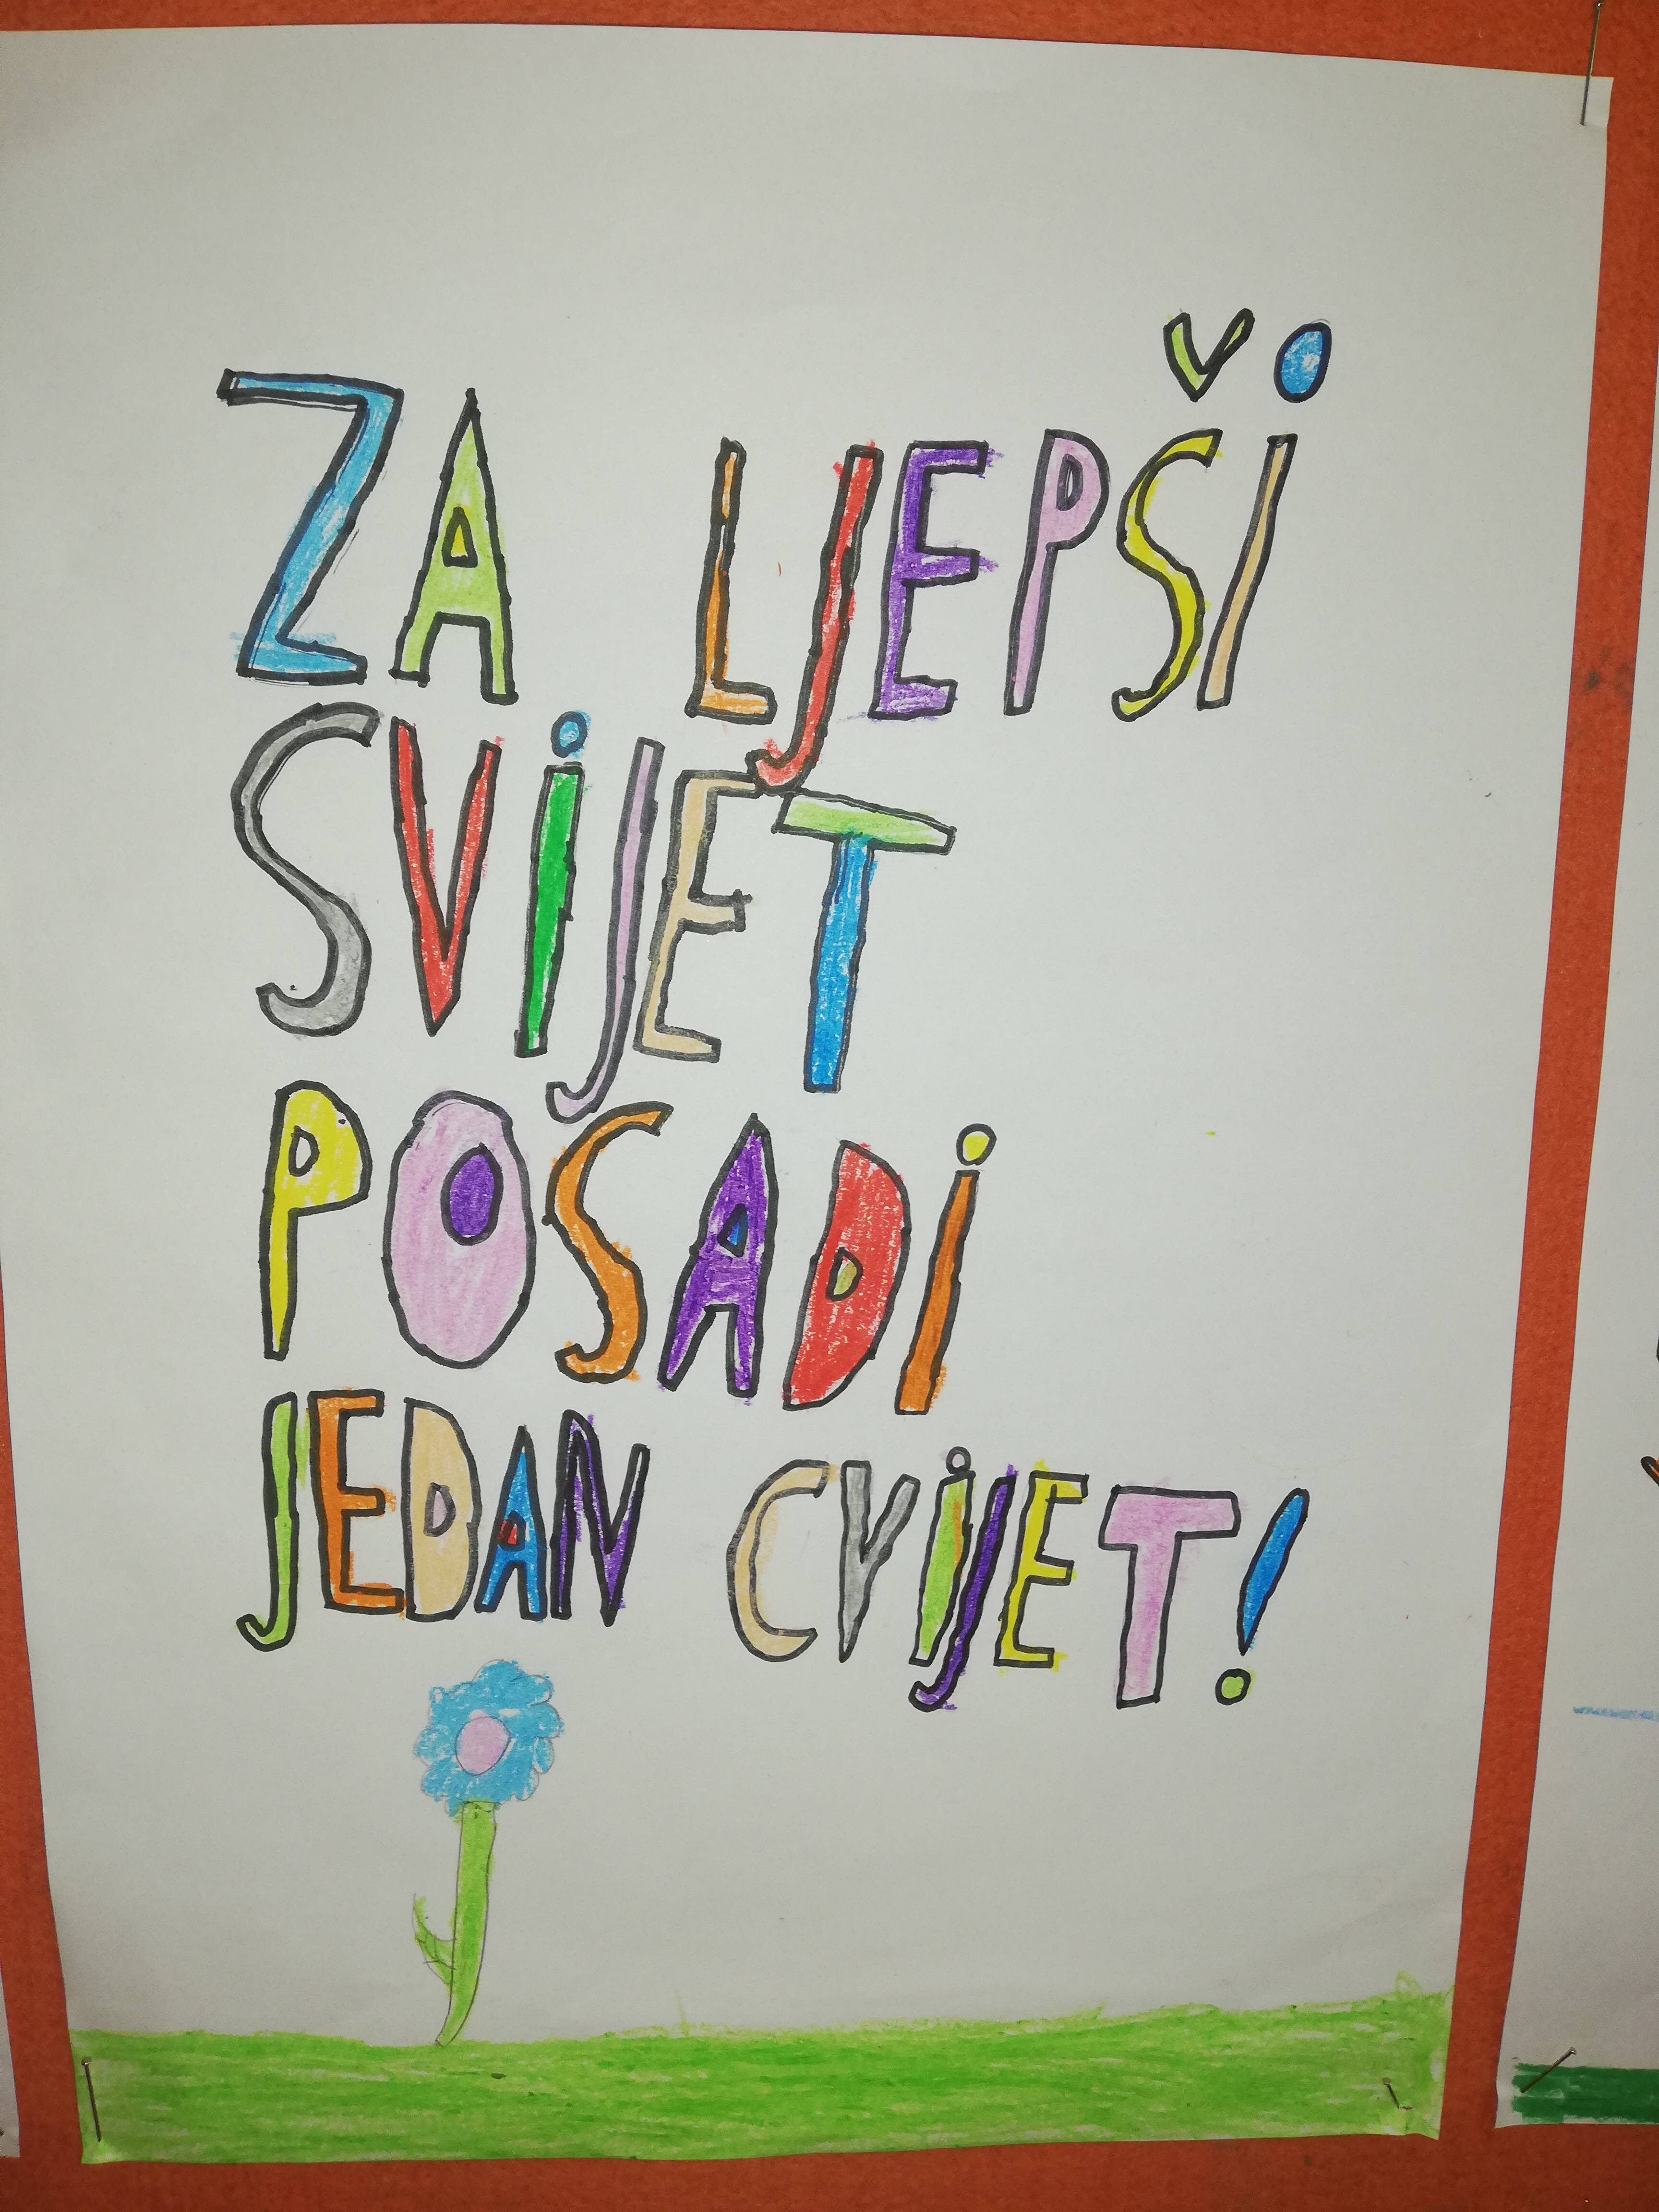 ZA LJEPŠI
SVIJET
POSADI
JEDAN CVIJET!